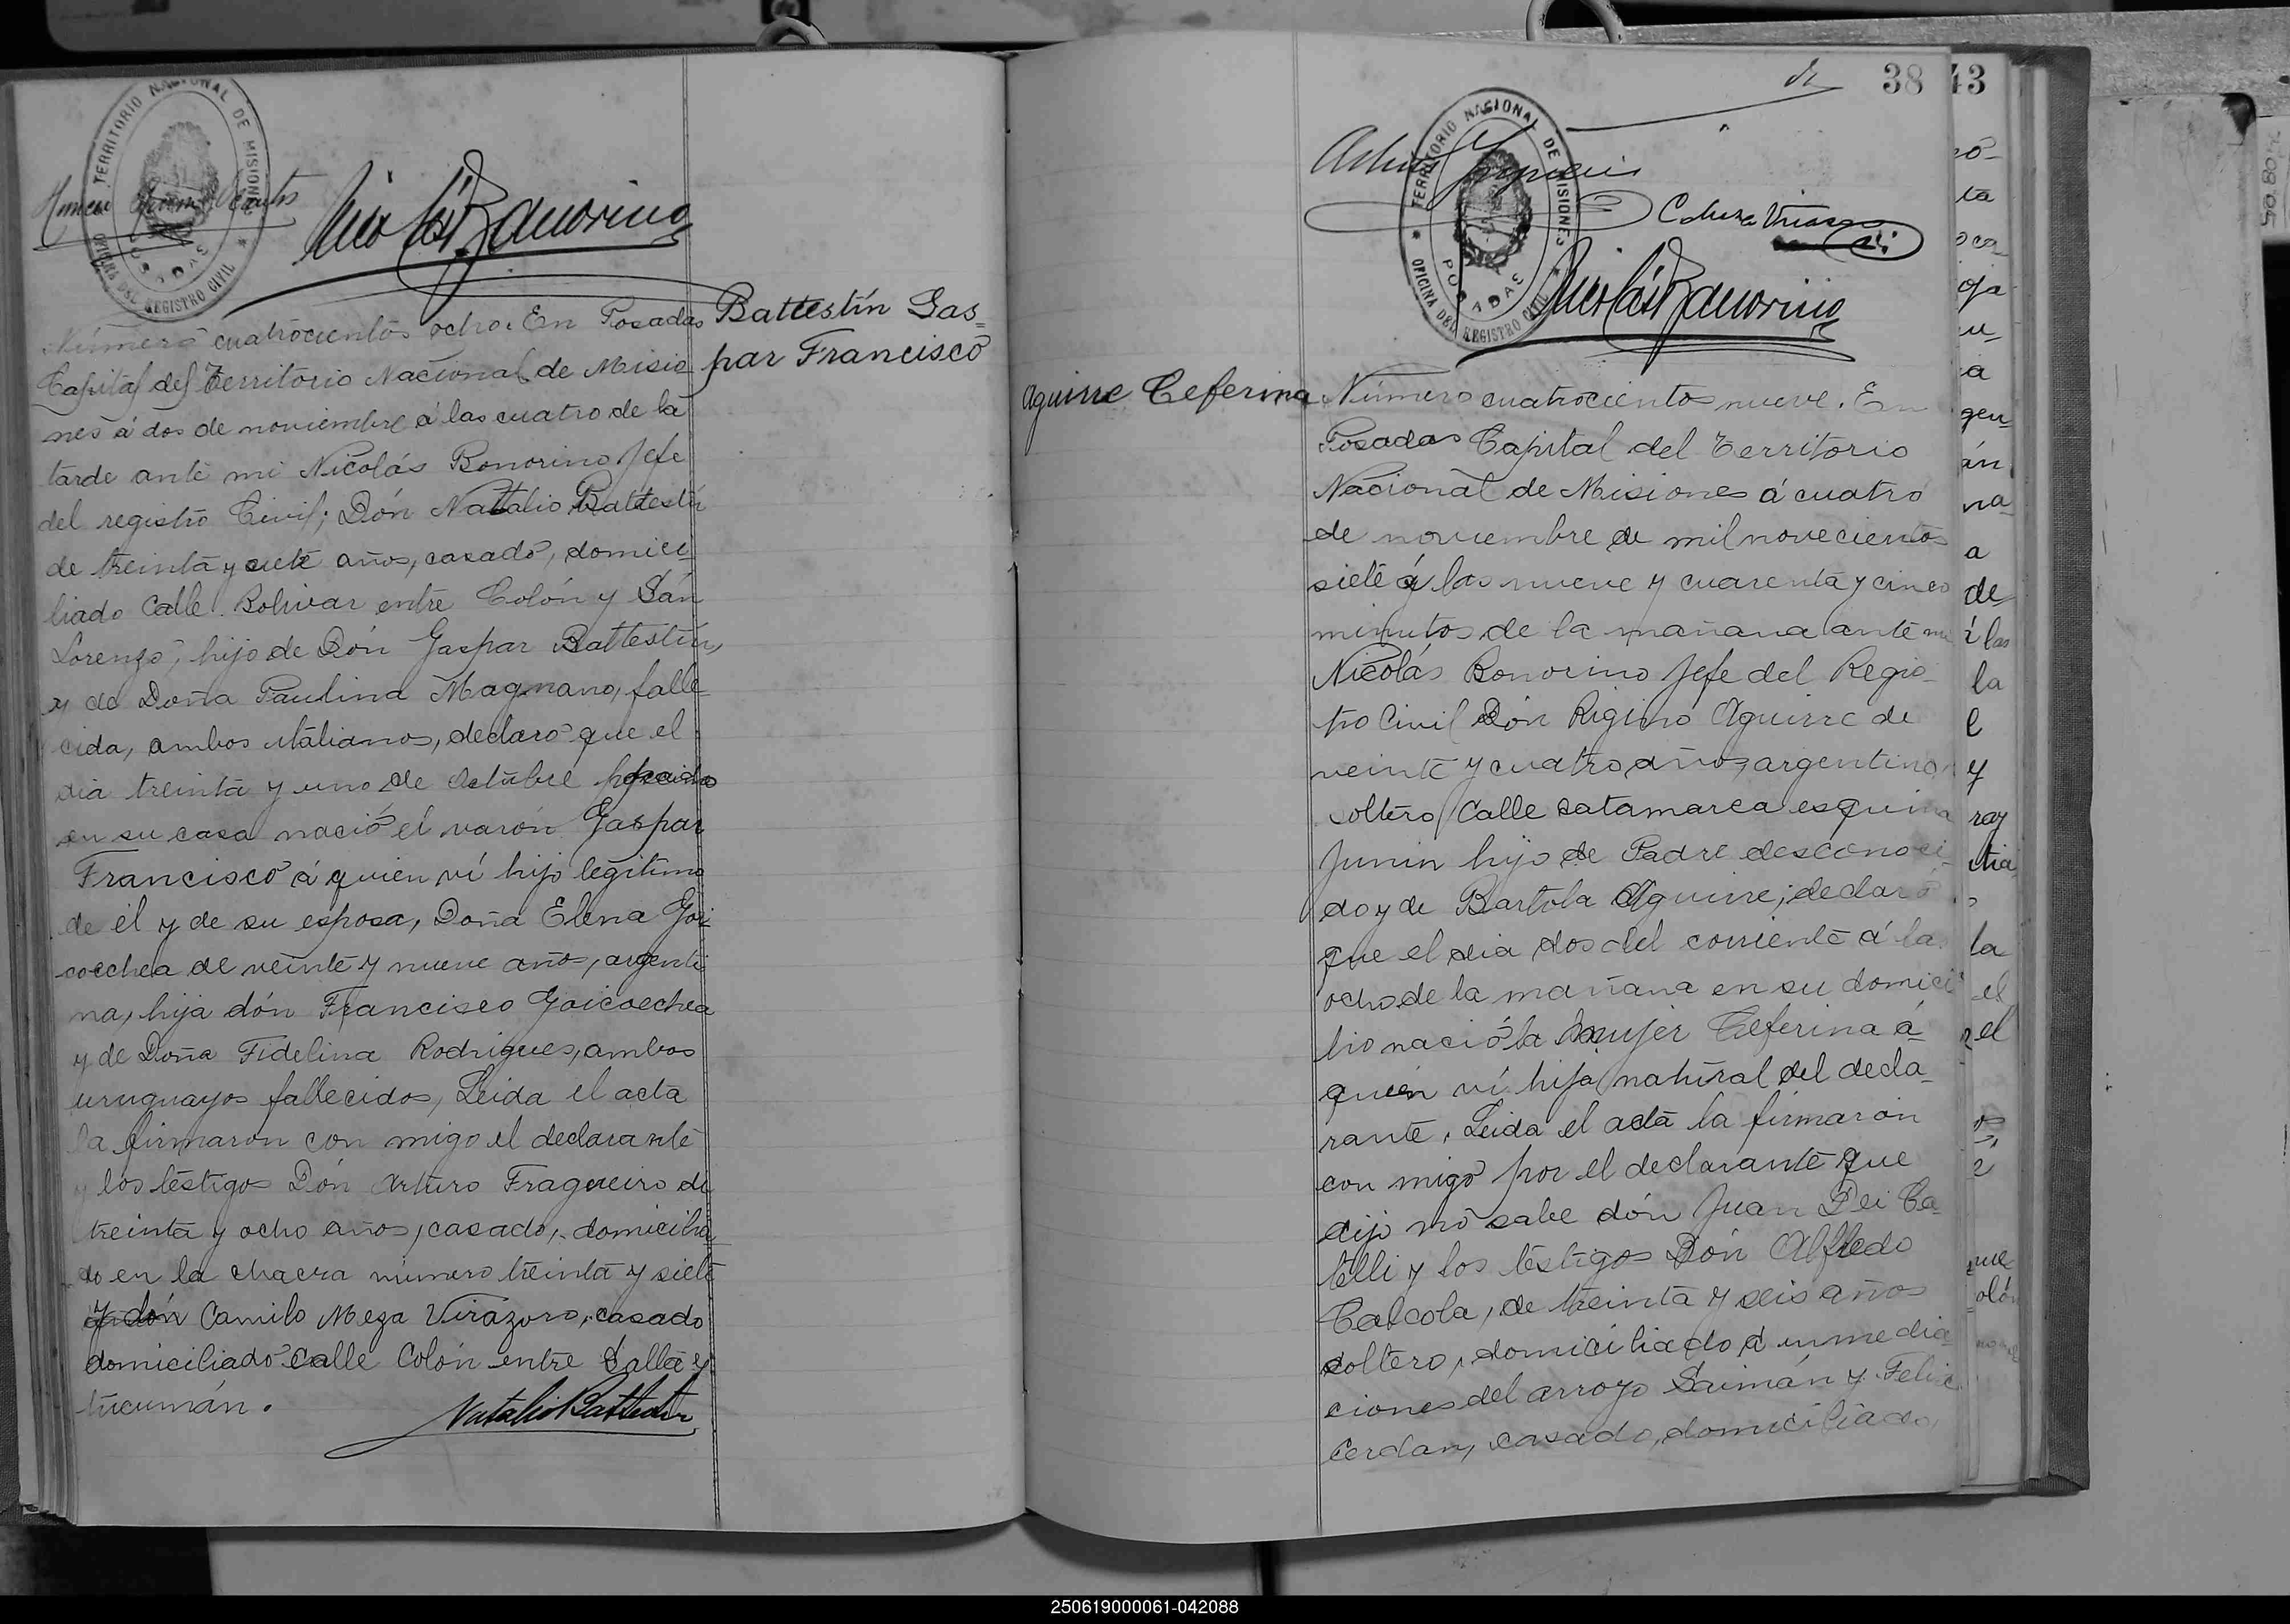 TERRITORIO NACIONAL DE MISIONES
POSADAS
OFICINA DEL REGISTRO CIVIL
Nicolás Bonorino
Número cuatrocientos ocho. En Posadas
Capital del Territorio Nacional de Misio
nes á dos de noviembre á las cuatro de la
tarde ante mi Nicolás Bonorino Jefe
del registro Civil; Dón Natalio Battestín
de treinta y siete años, casado, domici
liado Calle Bolivar entre Colón y Sán
Lorenzo, hijo de Dón Gaspar Battestín,
y de Doña Paulina Magnano, falle
cida, ambos italianos, declaró que el
dia treinta y uno de octubre
en su casa nació el varón Gaspar
Francisco á quien ví hijo legítimo
de él y de su esposa, Doña Elena Goi
coechea de veinte y nueve años, argenti
na, hija dón Francisco Goicoechea
y de Doña Fidelina Rodrigues, ambos
uruguayos fallecidos, Leida el acta
la firmaron con migo el declarante
y los testigos Dón Arturo Fragueiro de
treinta y ocho años, casado, domicilia
do en la chacra número treinta y siete
y dón Camilo Meza Virázoro, casado
domiciliado calle Colón entre Salta y
tucumán.
Natalio Battestin
Battestín Gas=
par Francisco
38
TERRITORIO NACIONAL DE MISIONES
POSADAS
OFICINA DEL REGISTRO CIVIL
Nicolás Bonorino
Aguirre Ceferina
Número cuatrocientos nueve. En
Posadas Capital del Territorio
Nacional de Misiones á cuatro
de noviembre de mil novecientos
siete á las nueve y cuarenta y cinco
minutos de la mañana ante mi
Nicolás Bonorino Jefe del Regis-
tro Civil Dón Rigino Aguirre de
veinte y cuatro años, argentino,
soltero Calle catamarca esquina
Junin hijo de Padre desconoci-
do y de Bartola Aguirre; declaró
que el dia dos del corriente á las
ocho de la mañana en su domici
lio nació la mujer Ceferina á
quien ví hija natural del decla-
rante. Leida el acta la firmarón
con migo por el declarante que
dijo nó sabe dón Juan Dei Ca-
telli y los testigos Dón Alfredo
Calcola, de treinta y seis años
soltero, domiciliado á inmedia
ciones del arroyo Saimán y Felix
Cerdan, casado, domiciliado
43
ta
oca
oja
gen
án
na
a
de
á las
la
l
y
ray
la
el
el
250619000061-042088